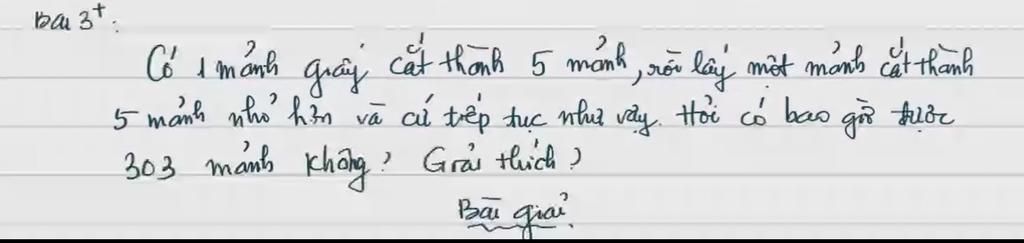 Bài 3+:
Có 1 mảnh giấy cắt thành 5 mảnh, rồi lấy một mảnh cắt thành
5 mảnh nhỏ hơn và cứ tiếp tục như vậy. Hỏi có bao giờ được
303 mảnh không? Giải thích?
Bài giải